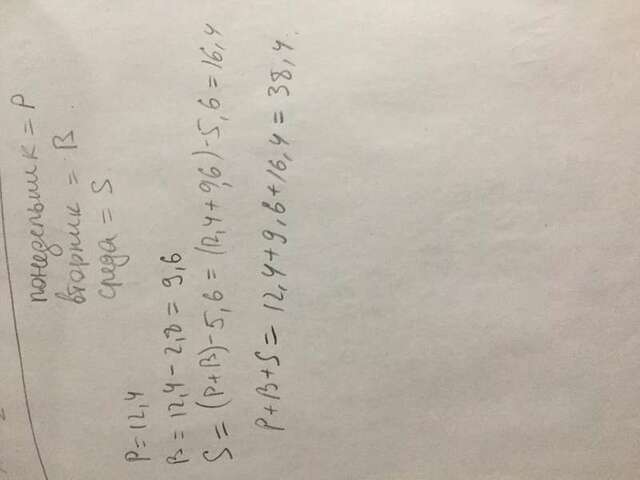 понедельник = P
вторник = B
среда = S
P = 12,4
B = 12,4 - 2,8 = 9,6
S = (P+B) - 5,6 = (12,4 + 9,6) - 5,6 = 16,4
P+B+S = 12,4 + 9,6 + 16,4 = 38,4.